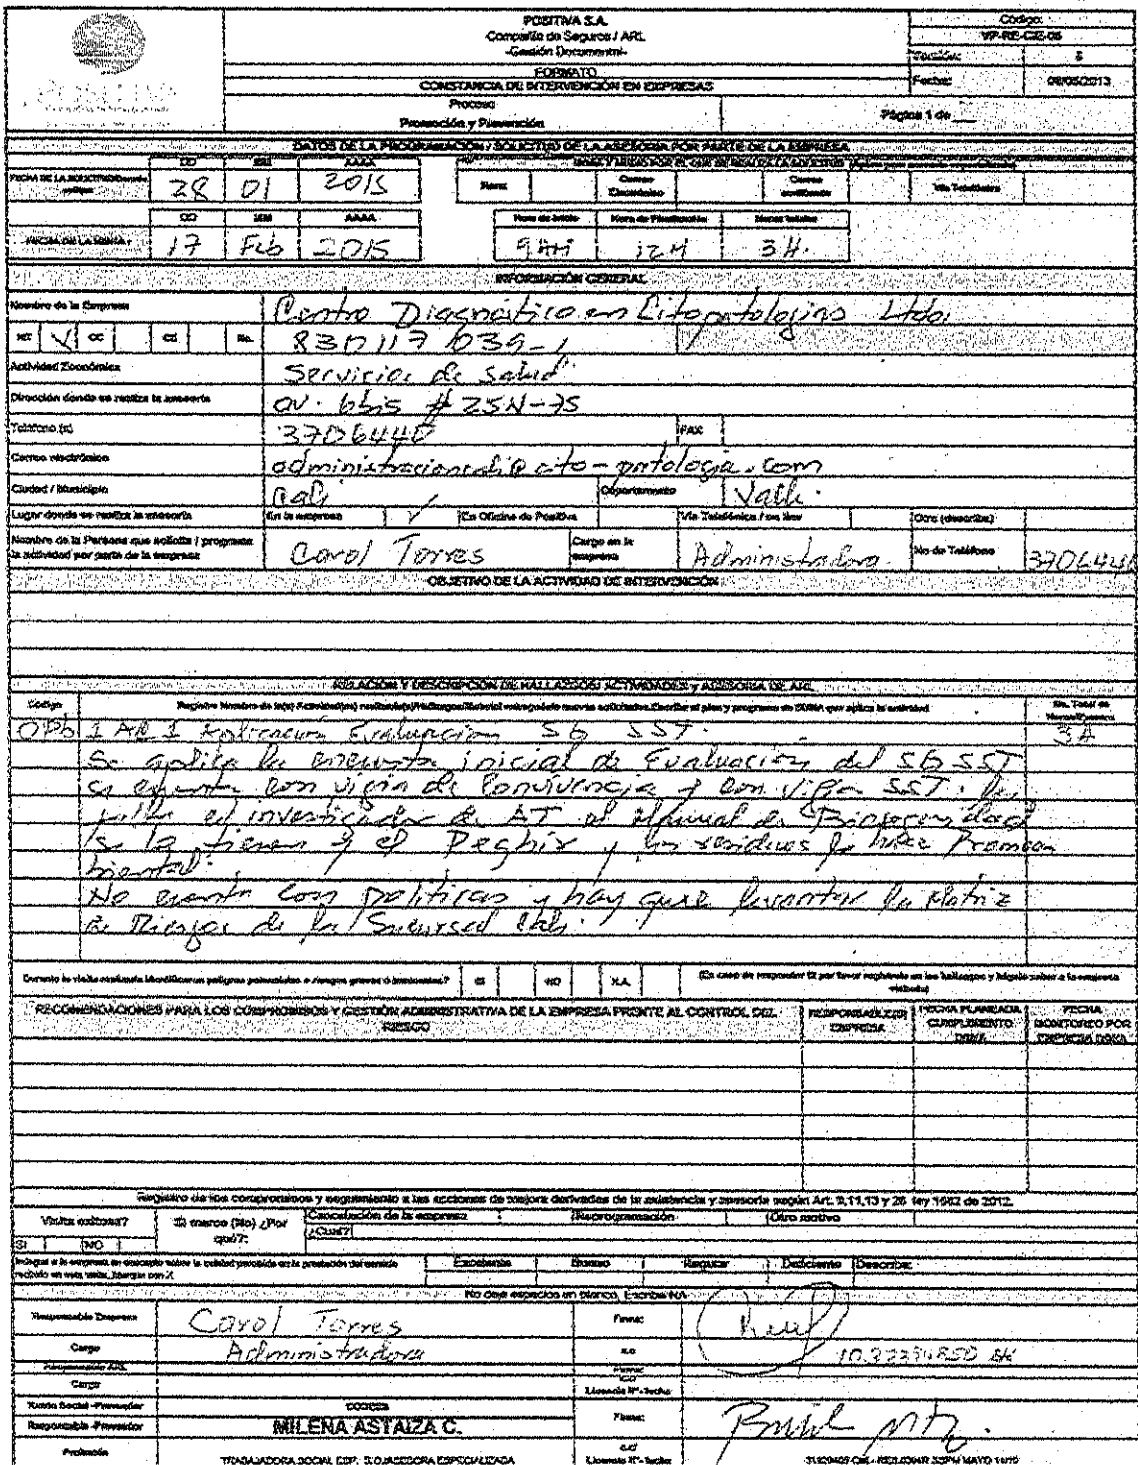 POSITIVA S.A.
Compañía de Seguros / ARL
-Gestión Documental-
FORMATO
CONSTANCIA DE INTERVENCIÓN EN EMPRESAS
Proceso
Promoción y Prevención
Código:
VP-RE-CIE-05
Versión: 5
Fecha: 08/05/2013
Página 1 de
DATOS DE LA PROGRAMACIÓN / SOLICITUD DE LA ASESORIA POR PARTE DE LA EMPRESA
DD MM AAAA
FECHA DE LA SOLICITUD 28 01 2015
Hora: Correo Electrónico Correo Vía Telefónica
DD MM AAAA Hora de Inicio Hora de Finalización Horas totales
17 Feb 2015 9 AM 12 M 3 H.
INFORMACIÓN GENERAL
Nombre de la Empresa Centro Diagnóstico en Citopatologias Ltda.
NIT CC CE No. 830117039-1
Actividad Económica Servicios de Salud
Dirección donde se realiza la asesoría av. 6bis # 25N-75
Teléfono (s) 3706440 FAX
Correo electrónico administracioncali@cito-patologia.com
Ciudad / Municipio Cali Departamento Valle.
Lugar donde se realiza la asesoría En la empresa ✓ En Oficina de Positiva Vía Telefónica / on line Otro (describa)
Nombre de la Persona que solicita / programa la actividad por parte de la empresa Carol Torres Cargo en la empresa Administradora. No de Teléfono 3706440
OBJETIVO DE LA ACTIVIDAD DE INTERVENCIÓN
RELACIÓN Y DESCRIPCIÓN DE HALLAZGOS/ ACTIVIDADES y ASESORIA DE ARL
Código
Aplicacion Evaluacion SG SST. 3 H
Se aplica la encuesta inicial de Evaluación del SG SST
se cuenta con vigia de Convivencia y con vigia SST.
el investigador de AT el Manual de Bioseguridad
tienen y el Peghir y los residuos lo hace
No cuenta con politicas y hay que levantar la Matriz
de Riesgos de la Sucursal Cali.
Durante la visita realizada identificaron peligros potenciales o riesgos graves o inminentes? SI NO N.A. (En caso de responder SI por favor regístrelo en los hallazgos y hágalo saber a la empresa visitada)
RECOMENDACIONES PARA LOS COMPROMISOS Y GESTIÓN ADMINISTRATIVA DE LA EMPRESA FRENTE AL CONTROL DEL RIESGO
RESPONSABLE EMPRESA
FECHA PLANEADA CUMPLIMIENTO
FECHA MONITOREO POR
Registro de los compromisos y seguimiento a las acciones de mejora derivadas de la asistencia y asesoría según Art. 9,11,13 y 26 ley 1562 de 2012.
Visita exitosa? Si marco (No) ¿Por qué?: Cancelación de la empresa Reprogramación Otro motivo
SI NO ¿Cual?
Excelente Bueno Regular Deficiente Describa:
No deje espacios en blanco, Escriba NA
Responsable Empresa Carol Torres Firma:
Cargo Administradora
Responsable ARL Firma:
Cargo Licencia N°- fecha
Razón Social -Proveedor CODESS
Responsable -Proveedor MILENA ASTAIZA C. Firma:
Profesión TRABAJADORA SOCIAL ESP. S.O./ASESORA ESPECIALIZADA Licencia N°- fecha